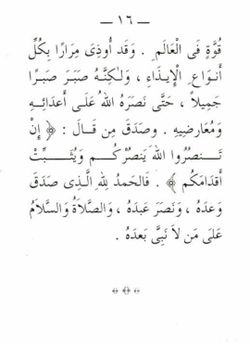 — ١٦ —
قُوَّةٍ فِى الْعَالَمِ . وَقَد أُوذِىَ مِرَارًا بِكُلِّ
أَنوَاعِ الْإِيذَاءِ ، وَلٰكِنَّهُ صَبَرَ صَبرًا
جَمِيلاً ، حَتَّى نَصَرَهُ اللهُ عَلَى أَعدَائِهِ
وَمُعَارِضِيهِ . وصَدَقَ مِن قَالَ : ﴿ إِنْ
تَـنصُرُوا اللهَ يَنصُرْكُـم وَيُثَـبِّتْ
أَقدَامَكُم ﴾ . فَالحَمدُ لِلهِ الَّـذِى صَدَقَ
وَعدَهُ ، وَنَصَرَ عَبدَهُ ، وَالصَّلاَةُ وَالسَّلاَمُ
عَلَى مَن لاَ نَبِىَّ بَعدَهُ .